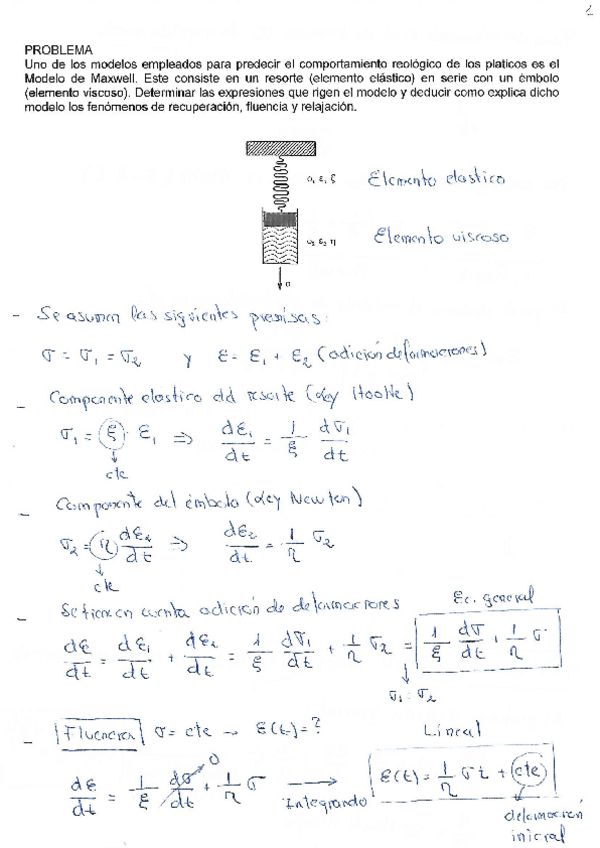 1
PROBLEMA
Uno de los modelos empleados para predecir el comportamiento reológico de los platicos es el
Modelo de Maxwell. Este consiste en un resorte (elemento elástico) en serie con un émbolo
(elemento viscoso). Determinar las expresiones que rigen el modelo y deducir como explica dicho
modelo los fenómenos de recuperación, fluencia y relajación.
σ, ε, ξ Elemento elastico
σ₂ ε₂ η Elemento viscoso
σ
- Se asumen las siguientes premisas:
σ = σ₁ = σ₂ y ε = ε₁ + ε₂ (adición deformaciones)
- Componente elastico del resorte (Ley Hooke)
σ₁ = ξ · ε₁ ⇒ dε₁/dt = 1/ξ dσ₁/dt
cte
- Componente del émbolo (Ley Newton)
σ₂ = η dε₂/dt ⇒ dε₂/dt = 1/η σ₂
cte
- Se tienen en cuenta adición de deformaciones Ec. general
dε/dt = dε₁/dt + dε₂/dt = 1/ξ dσ₁/dt + 1/η σ₂ = 1/ξ dσ/dt + 1/η σ
σ₁ = σ₂
- Fluencia σ = cte → ε(t) = ? Lineal
dε/dt = 1/ξ dσ/dt 0 + 1/η σ → Integrando ε(t) = 1/η σ t + cte
deformación
inicial